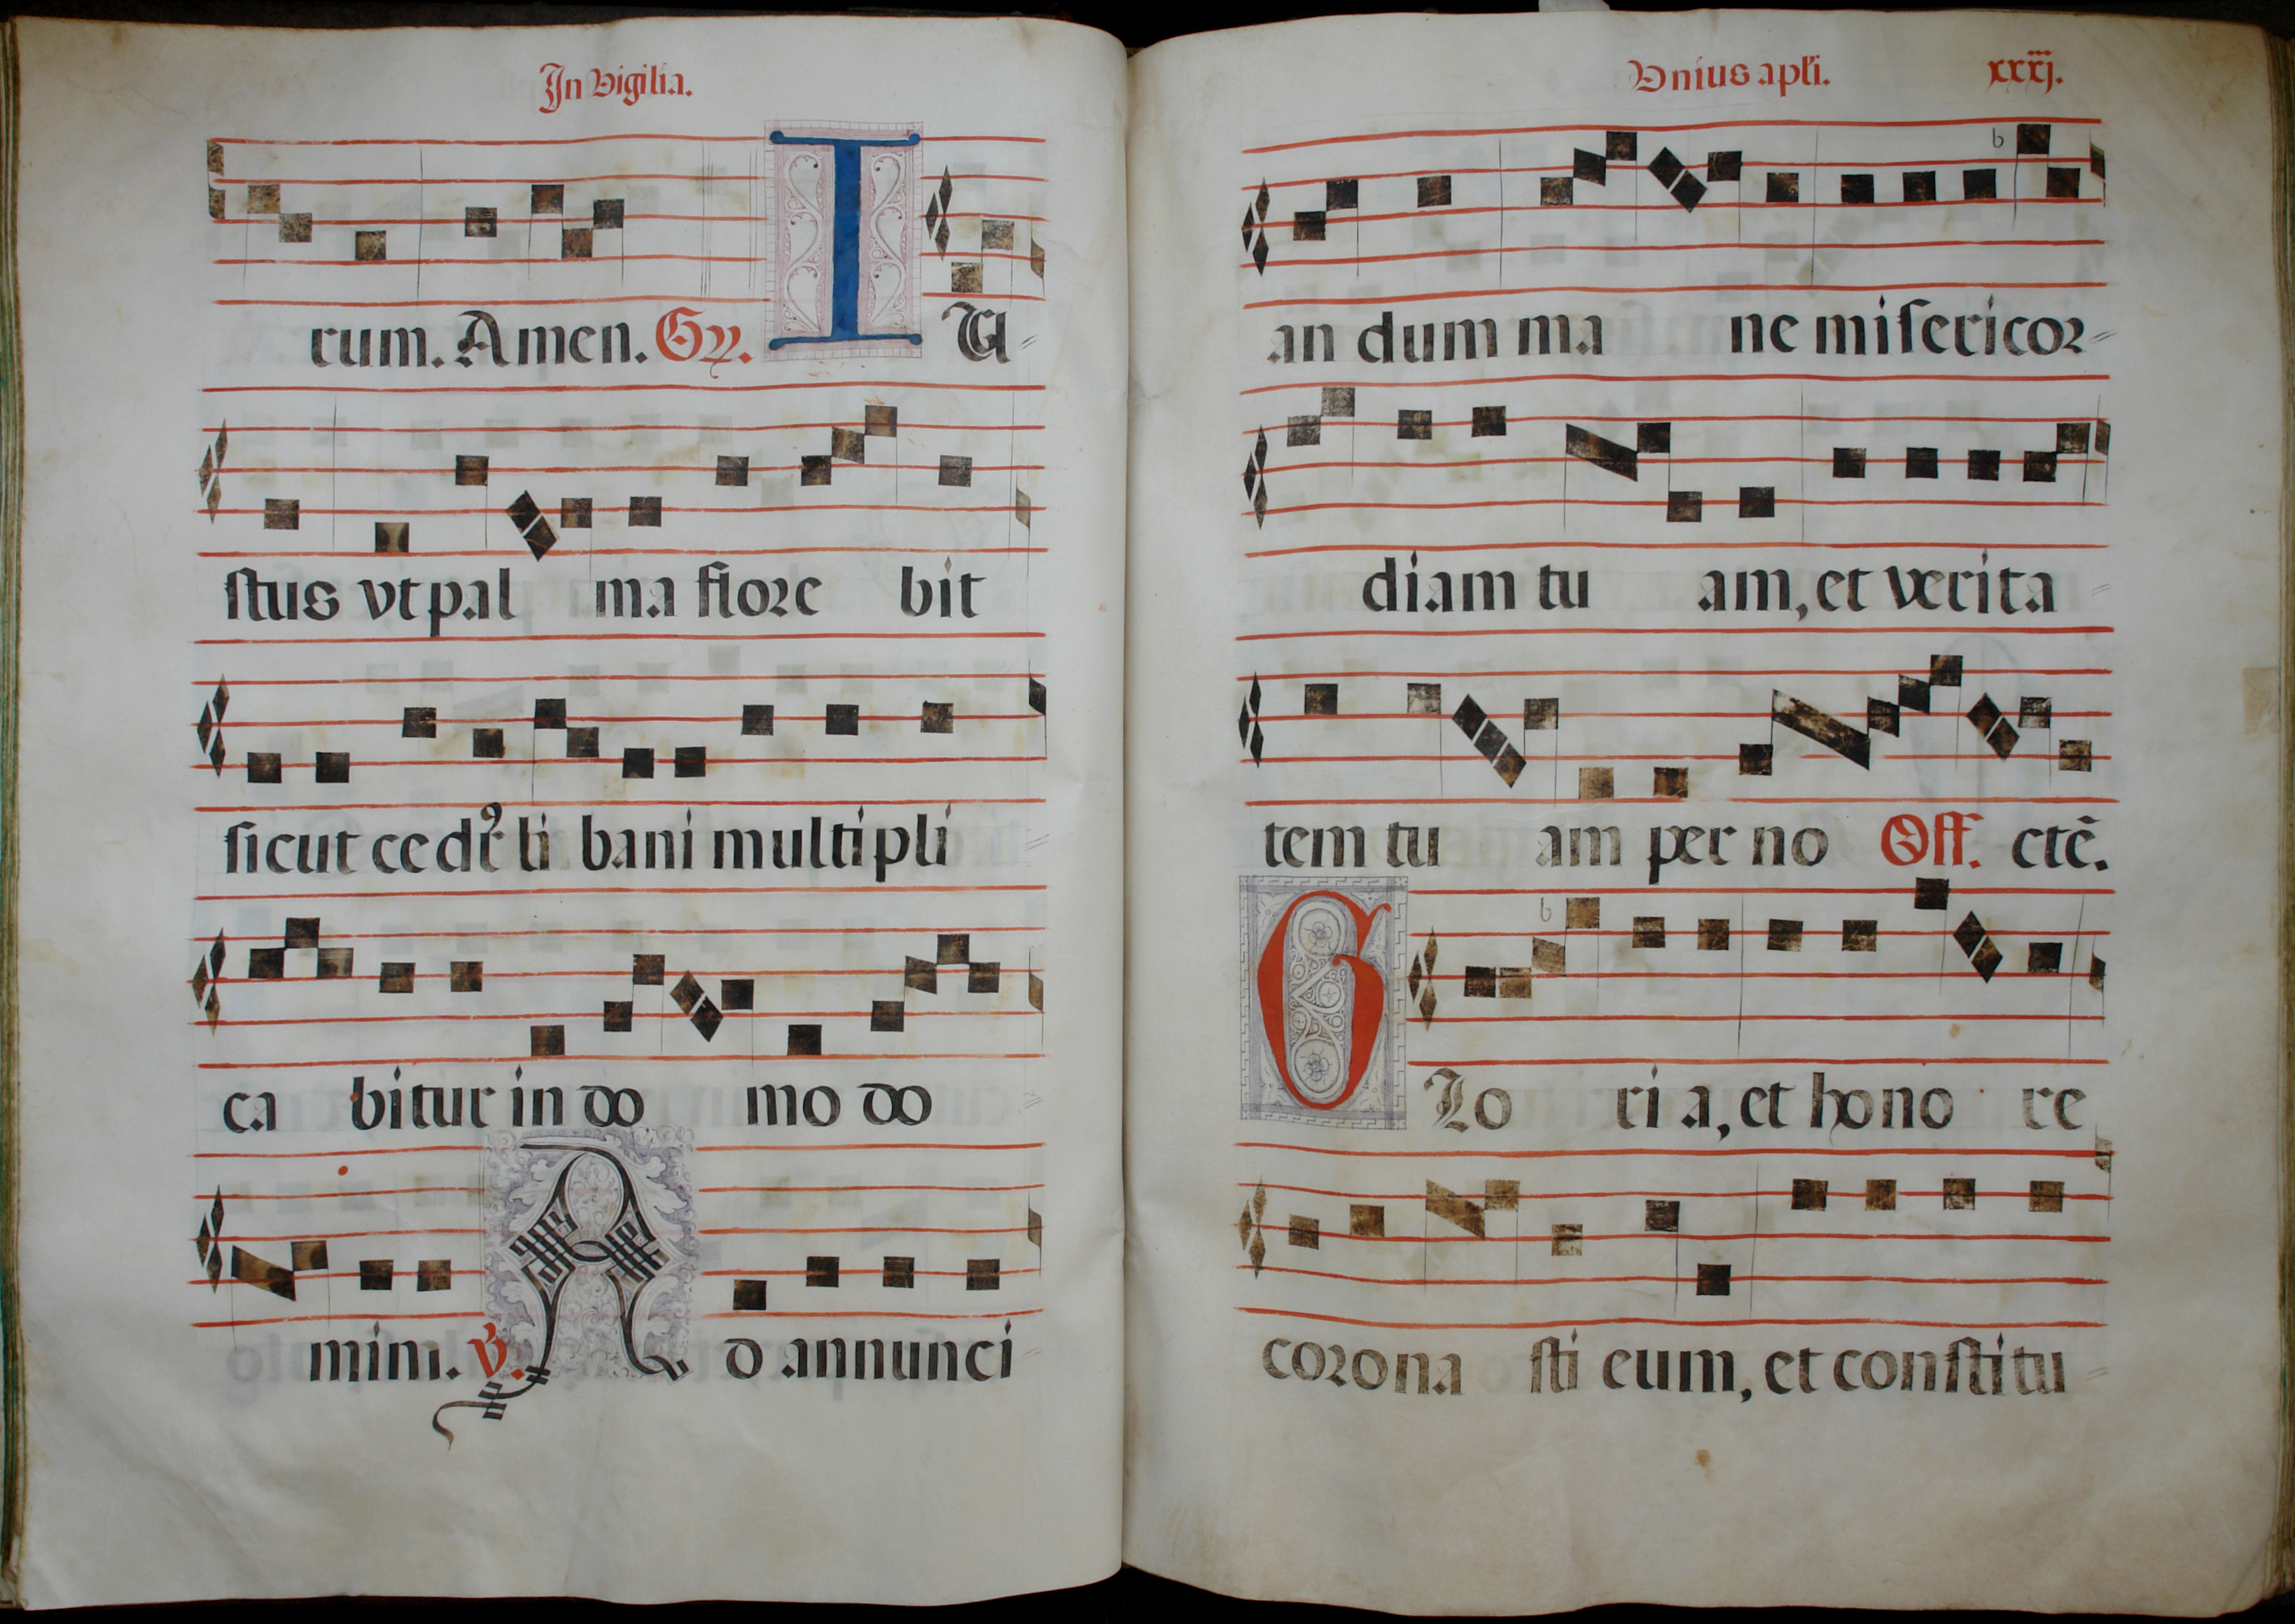 In Vigilia.
rum. Amen. Gr. IU
stus vt pal ma flore bit
sicut cedr⁹ li bani multipli
ca bitur in do mo do
mini. V. A d annunci
Vnius apli. xxxiij.
an dum ma ne misericor
diam tu am, et verita
tem tu am per no Off. ctē.
G Lo ri a, et hono re
corona sti eum, et constitu